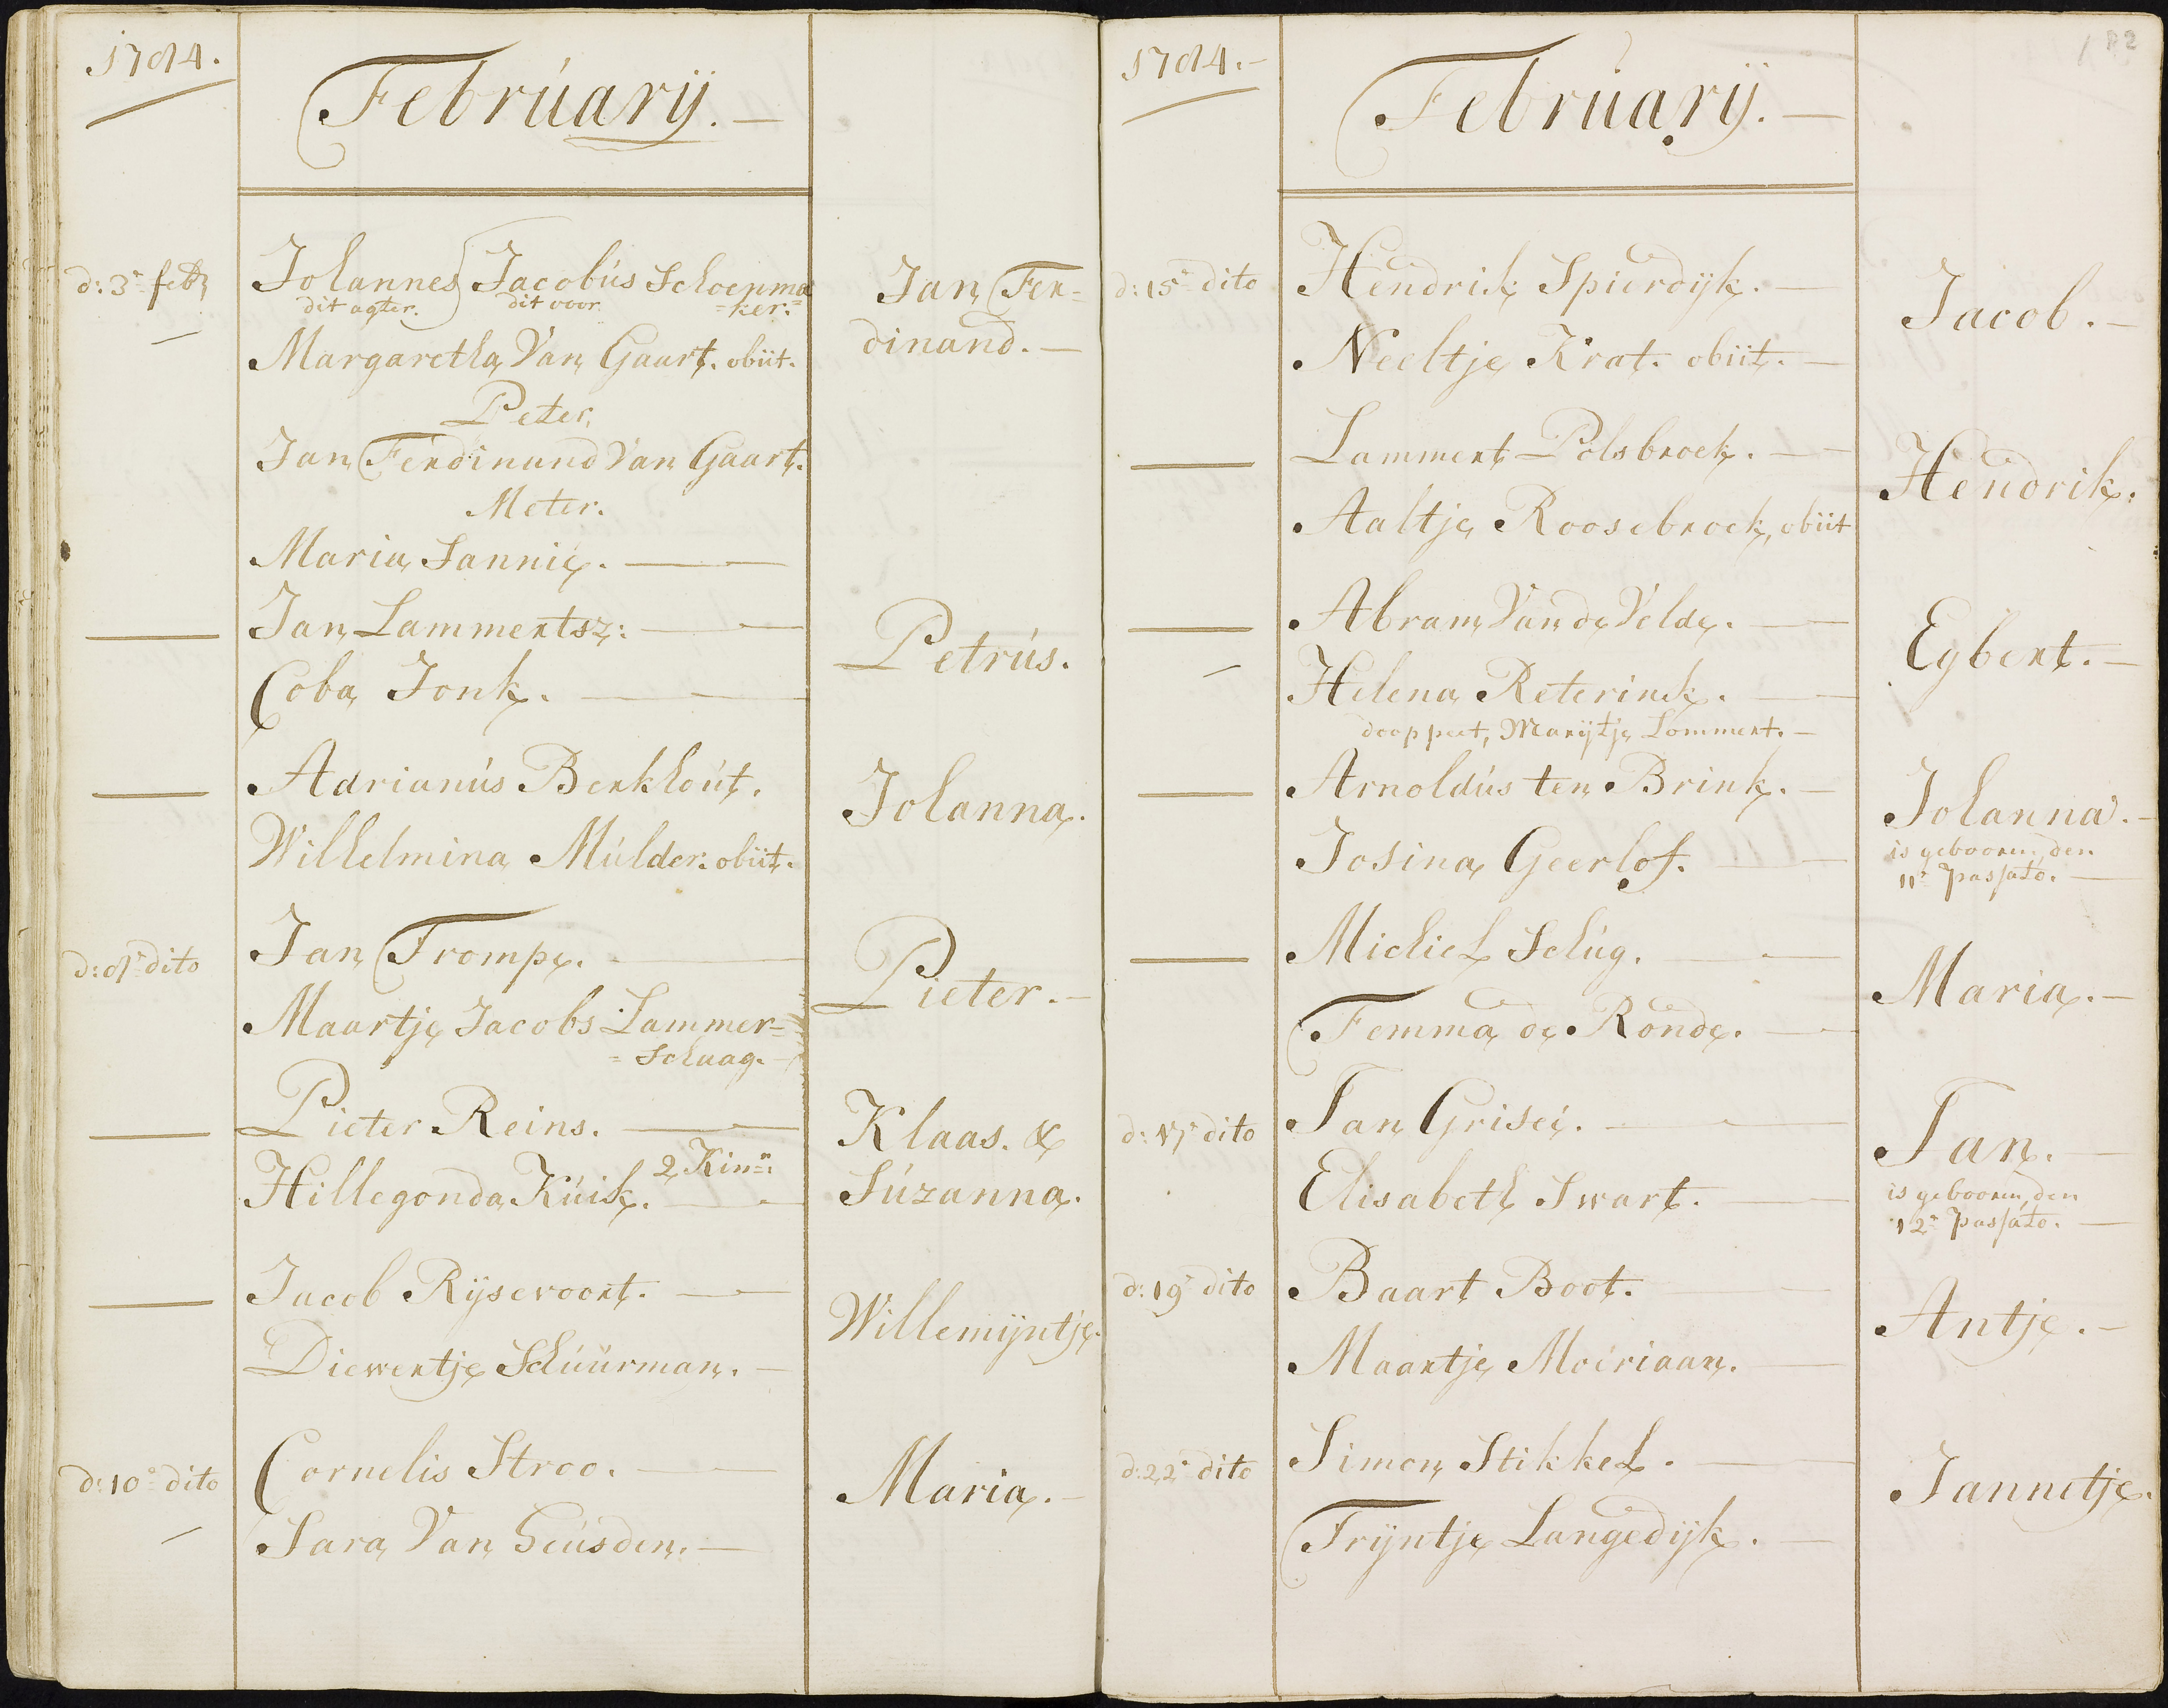 1784.
Februarij.
d: 3e febr
Johannes Jacobus Schoenma=
dit agter. dit voor =ker.
Jan Fer=
dinand.
Margaretha Van Gaart. obiit.
Peter,
Jan Ferdinand Van Gaart.
Meter.
Maria Jannig.
Jan Lammertsz:
Petrus.
Coba Jonk.
Adrianus Berkhout.
Johanna.
Wilhelmina Mulder. obiit.
d: 8e dito
Jan Trompe.
Pieter.
Maartje Jacobs Lammer=
=Schaag.
Pieter Reins.
Klaas. &
2 Kinn:
Hillegonda Kuik.
Suzanna.
Jacob Rijsevoort.
Willemijntje.
Diewertje Schuurman.
d: 10e dito
Cornelis Stroo.
Maria.
Sara Van Heusden.
1784.
Februarij.
182
d: 15e dito
Hendrik Spierdijk.
Jacob.
Neeltje Krat. obiit.
Lammert Polsbroek.
Hendrik.
Aaltje Roosebroek, obiit
Abram Van de Velde.
Egbert.
Helena Reterink.
doop peet, Marijtje Lommert.
Arnoldus ten Brink.
Johanna.
Josina Geerlof.
is gebooren, den
11e passato.
Michiel Schug.
Maria.
Femma de Ronde.
d: 17e dito
Jan Grisei.
Jan.
Elisabeth Swart.
is gebooren, den
12e passato.
d: 19e dito
Baart Boot.
Antje.
Maartje Moeriaan.
d: 22e dito
Simon Stikkel.
Jannetje.
Trijntje Langedijk.